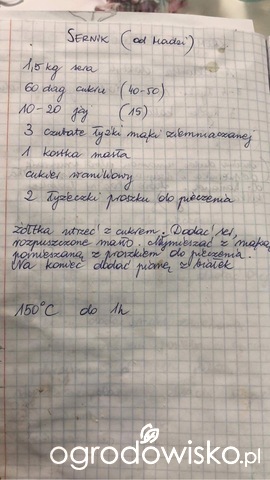 SERNIK (od Madzi)
1,5 kg sera
60 dag cukru (40-50)
10-20 jaj (15)
3 czubate łyżki mąki ziemniaczanej
1 kostka masła
cukier waniliowy
2 łyżeczki proszku do pieczenia
żółtka utrzeć z cukrem. Dodać ser,
rozpuszczone masło. Wymieszać z mąką
pomieszaną z proszkiem do pieczenia.
Na koniec dodać pianę z białek
150°C do 1h
ogrodowisko.pl